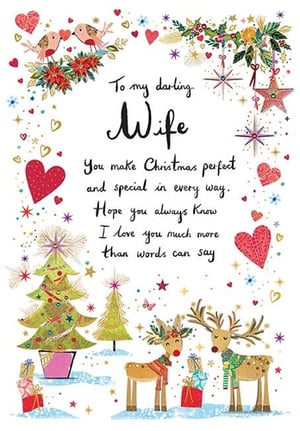 To my darling
Wife
You make Christmas perfect
and special in every way.
Hope you always know
I love you much more
than words can say